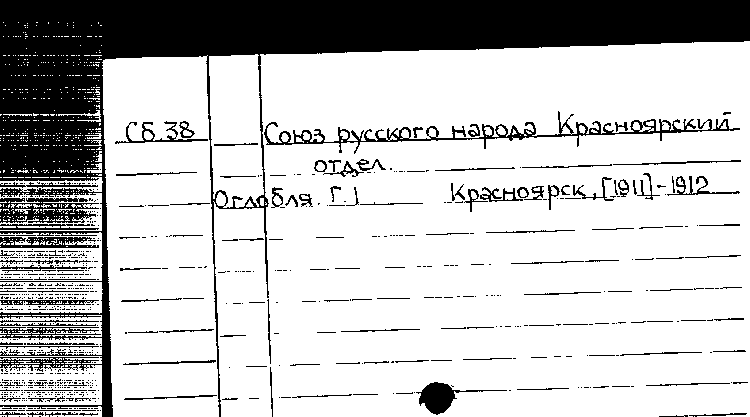 Сб.38 Союз русского народа Красноярский
отдел.
Оглобля. Г. 1 Красноярск, [1911]-1912